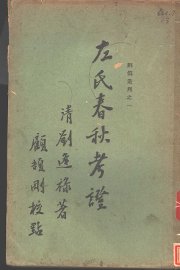 辨偽叢刊之一
左氏春秋考證
清劉逢祿著
顧頡剛校點